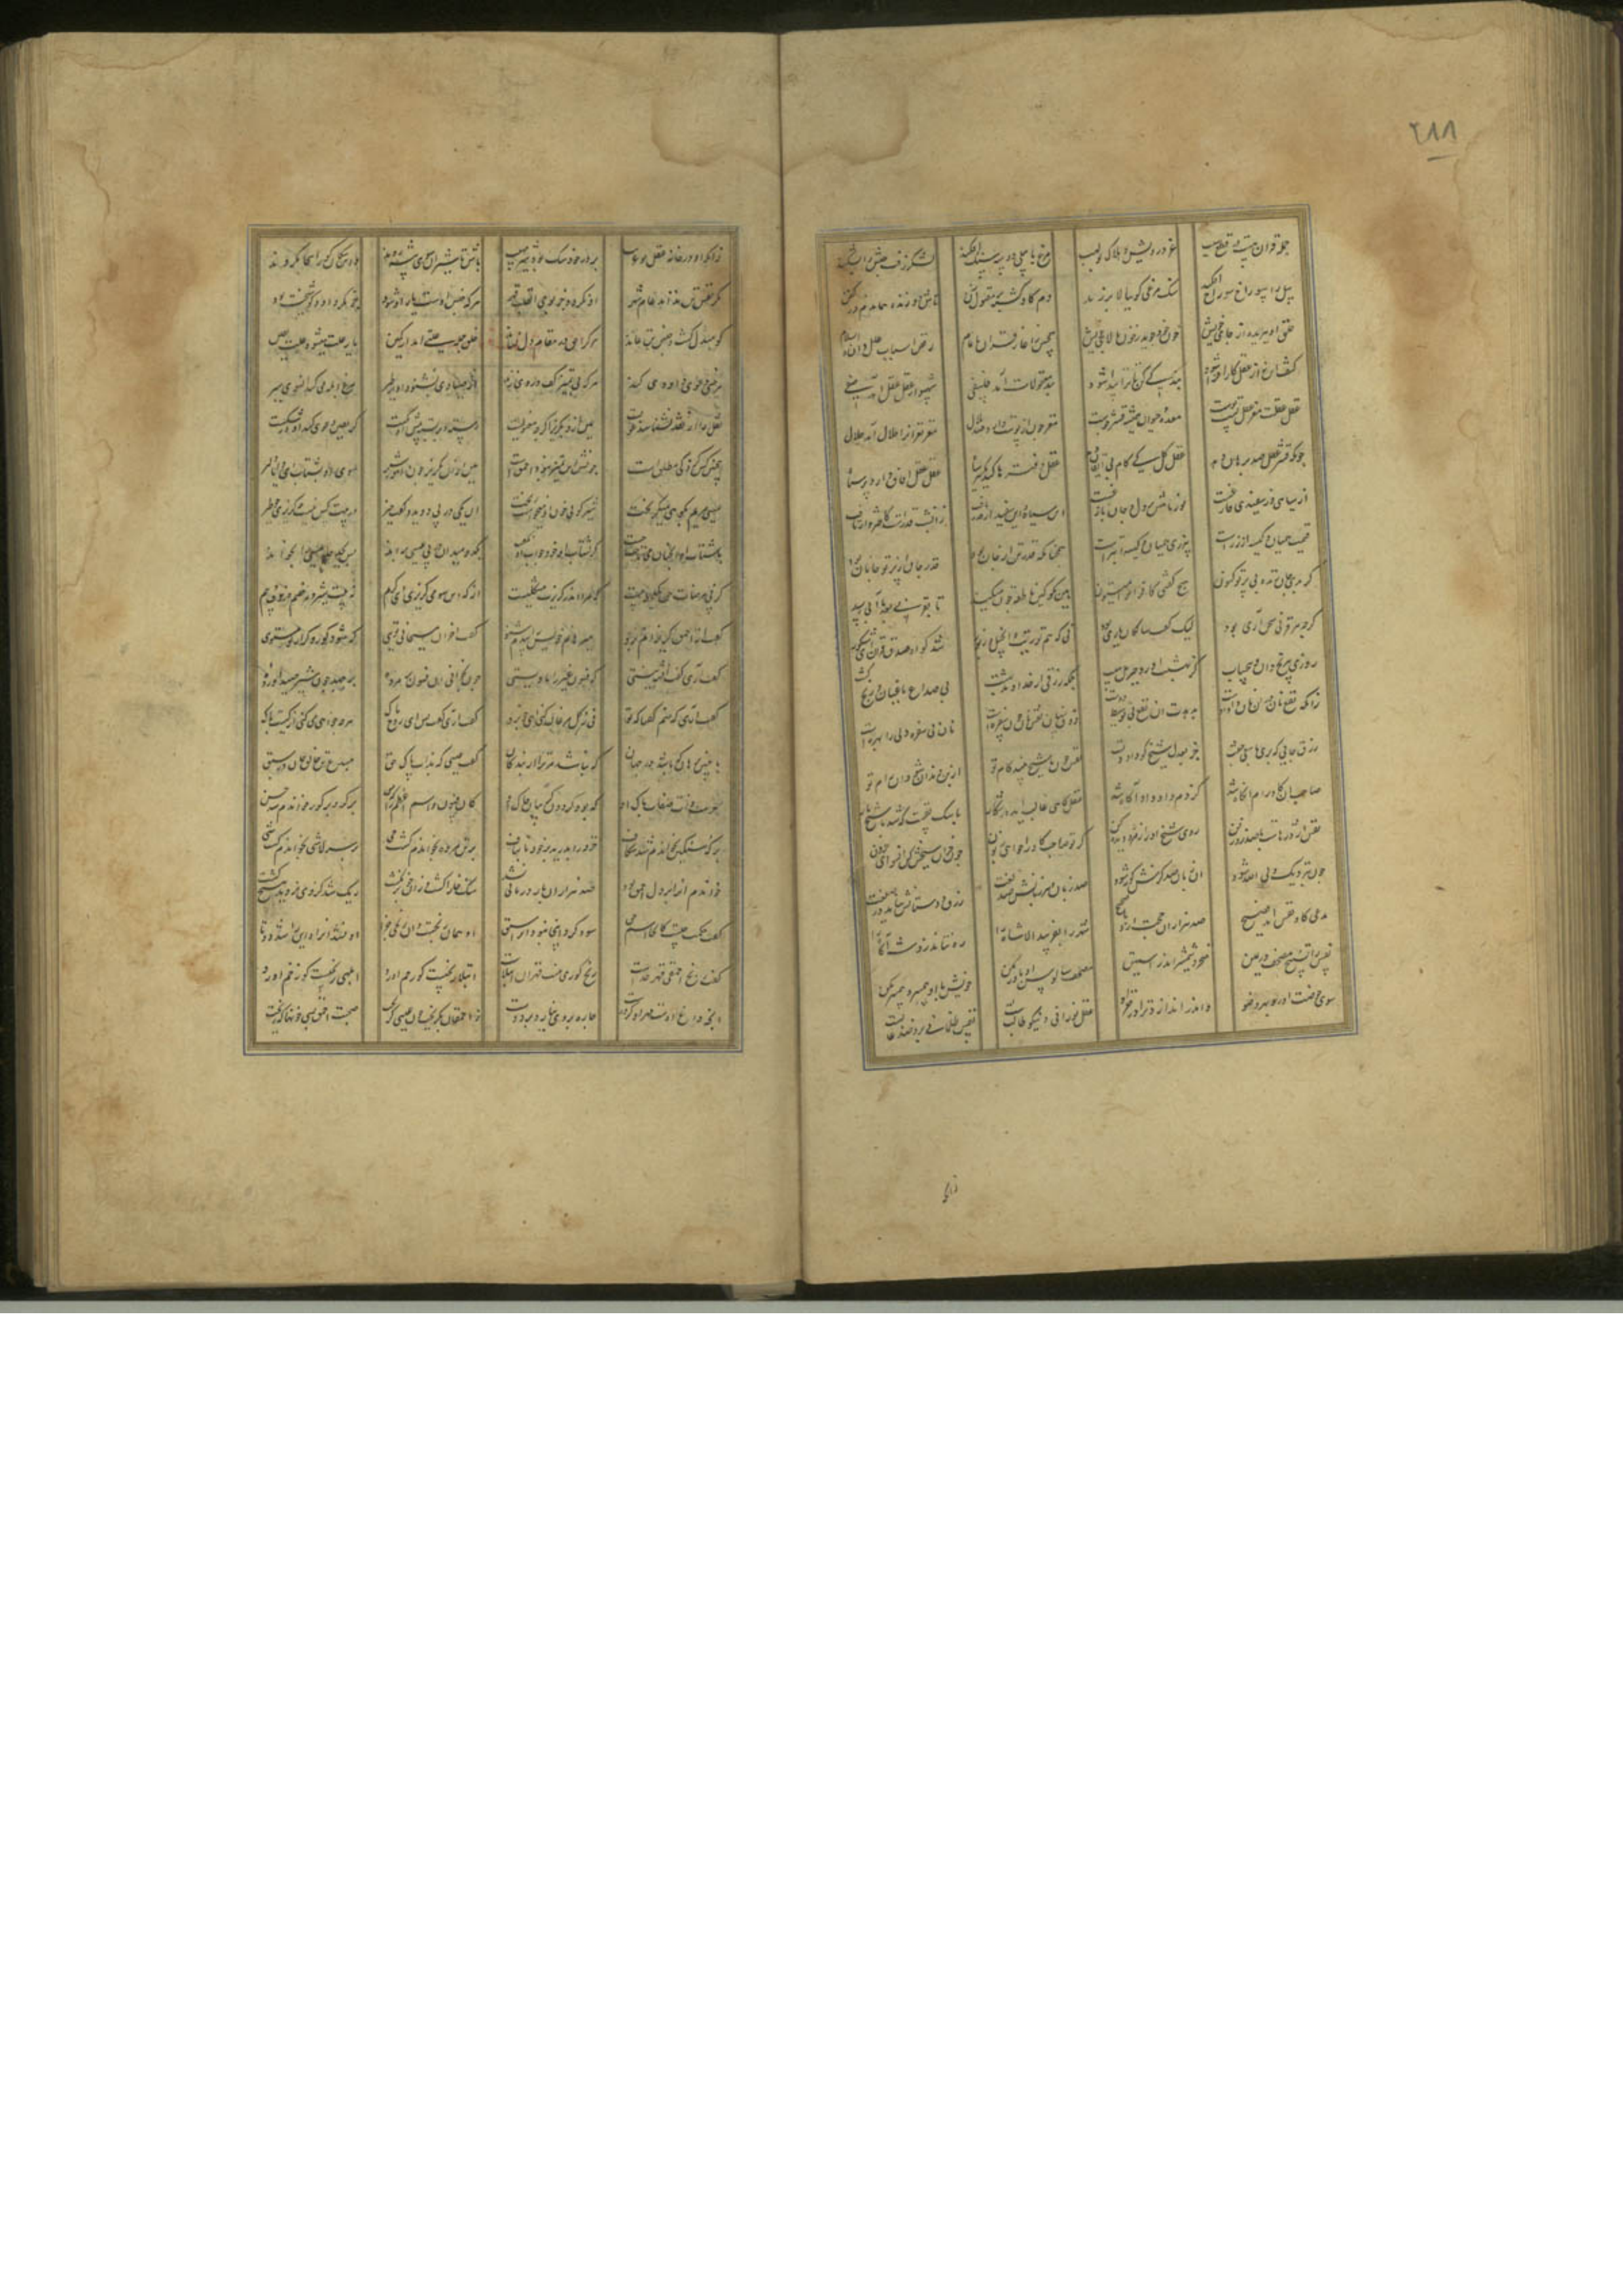 ۲۸۸
جمله قرآن هست در قطع سبب عز درویش و هلاک بولهب مرغ بابیلی دو سه سنگ افکند لشکر زفت حبش را بشکند
پیل را سوراخ سوراخ افکند سنگ مرغی کو ببالا پر زند دم گاو کشته بر مقتول زن تا شود زنده هماندم در کفن
حلق ببریده جهد از جای خویش خون خود جوید ز خون پالای خویش همچنین ز آغاز قرآن تا تمام رفض اسباب و علل والسلام
کشف این نز عقل کارافزا شود بندگی کن تا ترا پیدا شود بند معقولات آمد فلسفی شهسوار عقل عقل آمد صفی
عقل عقلت مغز و عقل تست پوست معده حیوان همیشه قشرجوست مغزجوی از پوست دارد صد ملال مغز نغزان را حلال آمد حلال
چونکه قشر عقل صد برهان دهد عقل کل کی گام بی ایقان نهد عقل دفترها کند یکسر سیاه عقل عقل آفاق دارد پر ز ماه
از سیاهی وز سپیدی فارغست نور ماهش بر دل و جان بازغست این سیاه و این سپید ار قدر یافت زان شب قدرست کاختروار تافت
قیمت همیان و کیسه از زرست بی ز زر همیان و کیسه ابترست همچنانکه قدر تن از جان بود قدر جان از پرتو جانان بود
گر بدی جان زنده بی پرتو کنون هیچ گفتی کافران را میتون هین بگو که ناطقه جو میکند تا بقرنی بعد ما آبی رسد
گرچه هر قرنی سخن آری بود لیک گفت سالفان یاری بود نی که هم توریت و انجیل و زبور شد گواه صدق قرآن ای شکور
روزی بی رنج دان و بی حساب کز بهشت آورد جبریل سیب بلکه رزقی از خداوند بهشت بی صداع باغبان و رنج کشت
زانکه نفع نان در آن نان داد اوست بدهدت آن نفع بی توسیط پوست ذوق پنهان نقش نان چون سفره ایست نان بی سفره ولی را بهره ایست
رزق جانی کی بری با سعی و جست جز بعدل شیخ کو داود تست نفس چون با شیخ بیند کام تو از بن دندان شود او رام تو
صاحب آن گاو رام آنگاه شد کز دم داود او آگاه شد عقل گاهی غالب آید در شکار
نفس اژدرهاست با صد زور و فن روی شیخ او را زمرد دیده کن گر تو صاحب گاو را خواهی زبون چون خران سیخش کن آن سو ای حرون
چون بنزدیک ولی الله شود آن زبان صد گزش کوته شود صد زبان و هر زبانش صد لغت زرق و دستانش نیاید در صفت
مدعی گاو نفس آمد فصیح صد هزاران حجت آرد ناصحیح شهر را بفریبد الا شاه را ره نتاند زد شه آگاه را
نفس را تسبیح و مصحف در یمین خنجر و شمشیر اندر آستین مصحف سالوس او باور مکن خویش با او همسر و همسر مکن
سوی حوضت آورد بهر وضو واندر اندازد ترا در قعر او عقل نورانی و نیکو طالبست نفس ظلمانی برو چون غالبست
زانکه او در خانه عقل تو غریب بر در خود سگ بود شیر مهیب باش تا شیران سوی بیشه روند وین سگان کور آنجا بگروند
مکر نفس و تن نداند عام شهر او نگردد جز بوحی القلب قهر هر که جنس اوست یار او شود جز مگر داود کو شیخت بود
کو مبدل گشت و جنس تن نماند هر کرا حق در مقام دل نشاند خلق جمله علتی اند از کمین یار علت میشود علت یقین
هر خسی دعوی داودی کند هر که بی تمییز کف در وی زند از صیادی بشنود آواز طیر مرغ ابله میکند آن سوی سیر
نقد را از نقل نشناسد غویست هین ازو بگریز اگرچه معنویست رسته و بر بسته پیش او یکیست گر یقین دعوی کند او در شکیست
این چنین کس گر ذکی مطلقست چونش این تمییز نبود احمقست هین ازو بگریز چون آهو ز شیر سوی او مشتاب ای دانا دلیر
عیسی مریم بکوهی میگریخت شیر گویی خون او میخواست ریخت آن یکی در پی دوید و گفت خیر در پیت کس نیست چه گریزی چو طیر
با شتاب او آنچنان میتاخت جفت کز شتاب خود جواب او نگفت یک دو میدان در پی عیسی براند پس بجد عیسی را بخواند
کز پی مرضات حق یک لحظه بیست که مرا اندر گریزت مشکلیست از که این سو میگریزی ای کریم نه پیت شیر و نه خصم و خوف و بیم
گفت از احمق گریزانم برو میرهانم خویش را بندم مشو گفت آخر آن مسیحا نه توی که شود کور و کر از تو مستوی
گفت آری گفت آن شه نیستی که فسون غیب را ماویستی چون بخوانی آن فسون بر مرده برجهد چون شیر صید آورده
گفت آری آن منم گفتا که تو نی ز گل مرغان کنی ای خوب رو گفت آری گفت پس ای روح پاک هرچه خواهی میکنی از کیست باک
با چنین برهان که باشد در جهان که نباشد مر ترا از بندگان گفت عیسی که بذات پاک حق مبدع تن خالق جان در سبق
حرمت ذات و صفات پاک او که بود گردون گریبان چاک او کان فسون و اسم اعظم را که من بر کر و بر کور خواندم شد حسن
بر که سنگین بخواندم شد شکاف خرقه را بدرید بر خود تا بناف بر تن مرده بخواندم گشت حی بر سر لاشی بخواندم گشت شی
خواندم آنرا بر دل احمق بود صد هزاران بار و درمانی نشد سنگ خارا گشت و زان خو برنگشت ریگ شد کز وی نروید هیچ کشت
گفت حکمت چیست کانجا اسم حق سود کرد اینجا نبود آنرا سبق آن همان رنجست و این رنجی چرا
گفت رنج احمقی قهر خداست رنج کوری نیست قهر آن ابتلاست ابتلا رنجیست کو رحم آورد احمقی رنجیست کو زخم آورد
آنچه داغ اوست مهر او کرده است چاره بر وی نیارد برد دست ز احمقان بگریز چون عیسی گریخت صحبت احمق بسی خونها که ریخت